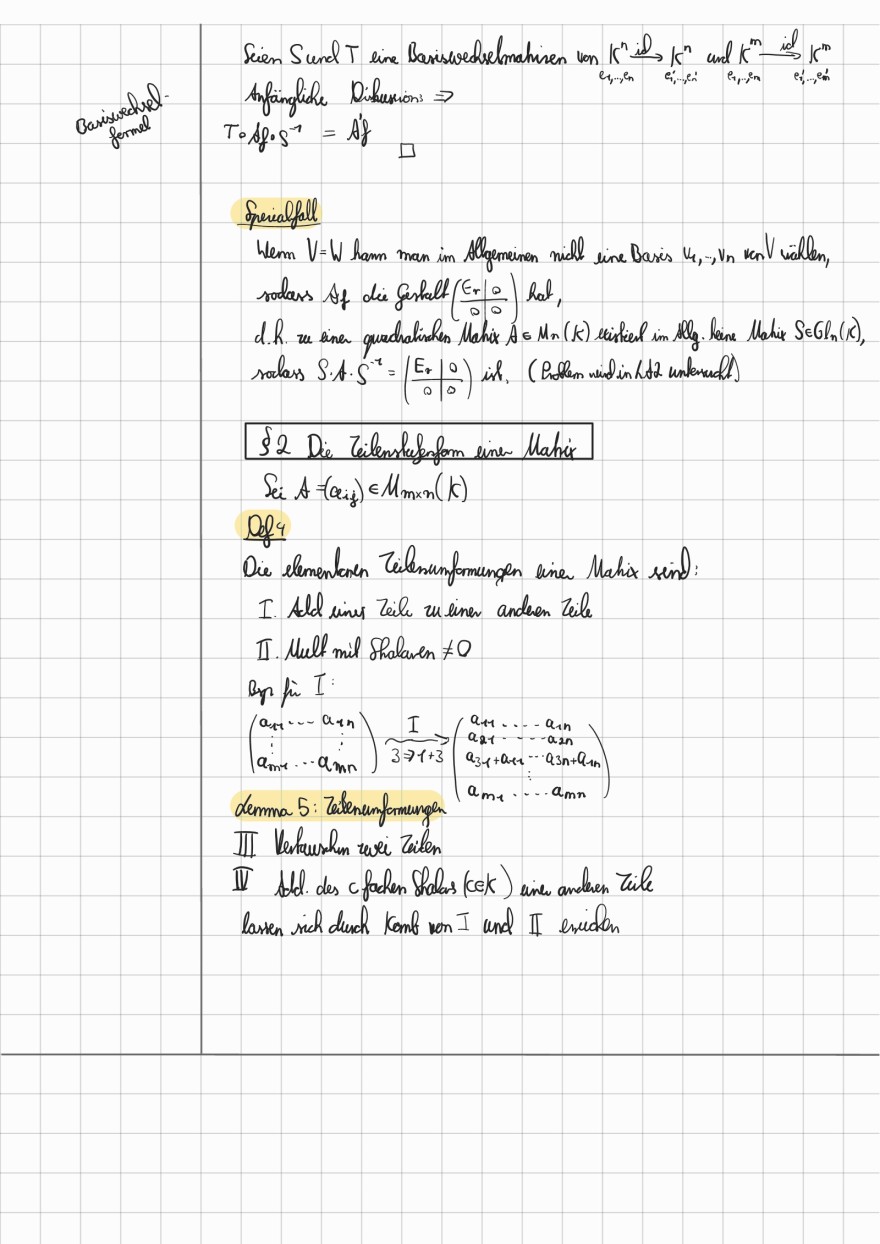 Seien S und T eine Basiswechselmatrizen von Kⁿ –id→ Kⁿ und Kᵐ –id→ Kᵐ
e₁,...,eₙ e₁',...,eₙ' e₁,...,eₘ e₁',...,eₘ'
Basiswechsel-
formel
Anfängliche Diskussion: ⇒
T∘Af∘S⁻¹ = A'f
□
Spezialfall
Wenn V=W kann man im Allgemeinen nicht eine Basis v₁,..,vₙ von V wählen,
sodass Af die Gestalt (Eᵣ | 0 / 0 | 0) hat,
d.h. zu einer quadratischen Matrix A ∈ Mₙ(K) existiert im Allg. keine Matrix S∈Glₙ(K),
sodass S·A·S⁻¹ = (Eᵣ | 0 / 0 | 0) ist. (Problem wird in LA2 untersucht)
§2 Die Zeilenstufenform einer Matrix
Sei A =(aᵢⱼ) ∈ Mₘₓₙ(K)
Def 4
Die elementaren Zeilenumformungen einer Matrix sind:
I. Add einer Zeile zu einer anderen Zeile
II. Mult mit Skalaren ≠0
Bsp für I:
(a₁₁ ... a₁ₙ / ⋮ ⋮ / aₘ₁ ... aₘₙ) –I→ 3⇒1+3 (a₁₁ .... a₁ₙ / a₂₁ ..... a₂ₙ / a₃₁+a₁₁ ... a₃ₙ+a₁ₙ / ⋮ / aₘ₁ .... aₘₙ)
Lemma 5: Zeilenumformungen
III Vertauschen zwei Zeilen
IV Add. des c fachen Skalars (c∈K) einer anderen Zeile
lassen sich durch Komb von I und II